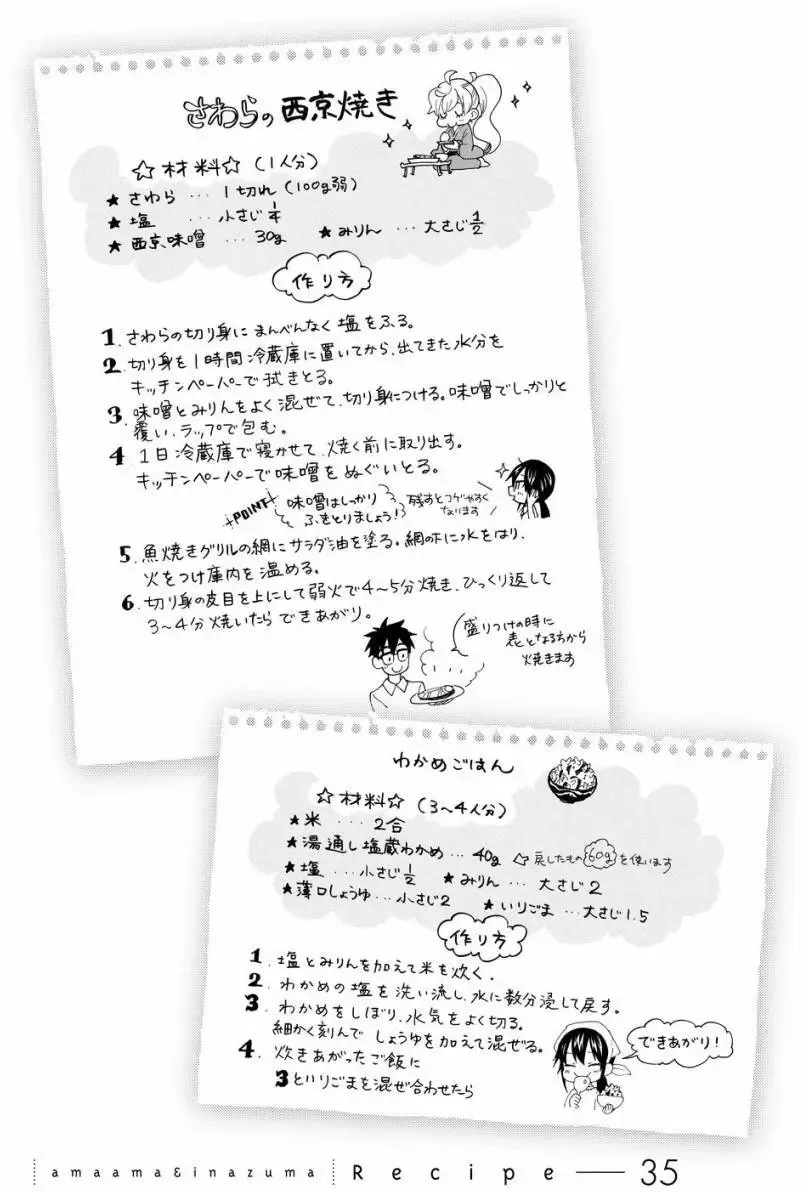 さわらの西京焼き
☆材料☆(1人分)
★さわら…1切れ(100g弱)
★塩 …小さじ1/4
★西京味噌 …30g ★みりん …大さじ1/2
作り方
1.さわらの切り身にまんべんなく塩をふる。
2.切り身を1時間冷蔵庫に置いてから、出てきた水分を
キッチンペーパーで拭きとる。
3.味噌とみりんをよく混ぜて、切り身につける。味噌でしっかりと
覆い、ラップで包む。
4 1日冷蔵庫で寝かせて、焼く前に取り出す。
キッチンペーパーで味噌をぬぐいとる。
POINT 味噌はしっかり
ふきとりましょう!
残すとコゲやすく
なります
5.魚焼きグリルの網にサラダ油を塗る。網の下に水をはり、
火をつけ庫内を温める。
6.切り身の皮目を上にして弱火で4〜5分焼き、ひっくり返して
3〜4分焼いたらできあがり。
盛りつけの時に
表となる方から
焼きます
わかめごはん
☆材料☆(3〜4人分)
★米 …2合
★湯通し塩蔵わかめ…40g ⇦戻したもの60gを使います
★塩 …小さじ1/2 ★みりん…大さじ2
★薄口しょうゆ…小さじ2 ★いりごま…大さじ1.5
作り方
1.塩とみりんを加えて米を炊く.
2.わかめの塩を洗い流し、水に数分浸して戻す。
3.わかめをしぼり、水気をよく切る。
細かく刻んでしょうゆを加えて混ぜる。
4.炊きあがったご飯に
3といりごまを混ぜ合わせたら
できあがり!
amaama&inazuma Recipe — 35